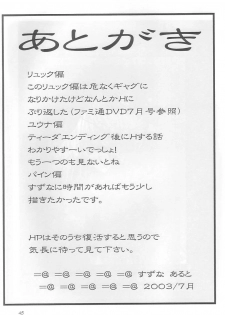 あとがき
リュック偏
このリュック偏は危なくギャグに
なりかけたけどなんとかHに
ぶり返した(ファミ通DVD7月号参照)
ユウナ偏
ティーダエンディング後にHする話
わかりやすーいでっしょ!
もう一つのも見ないとね
パイン偏
すずなに時間があればもう少し
描きたかったです。
HPはそのうち復活すると思うので
気長に待って見て下さい。
=@ =@ =@ =@ =@ すずな あると
=@ =@ =@ =@ =@ 2003/7月
45